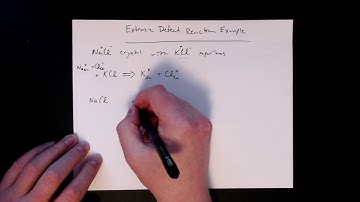 Extrinsic Defect Reaction Example
Na⁺Cl⁻ crystal with K⁺Cl⁻ impurities
+ KCl ⟹ K + Cl
NaCl